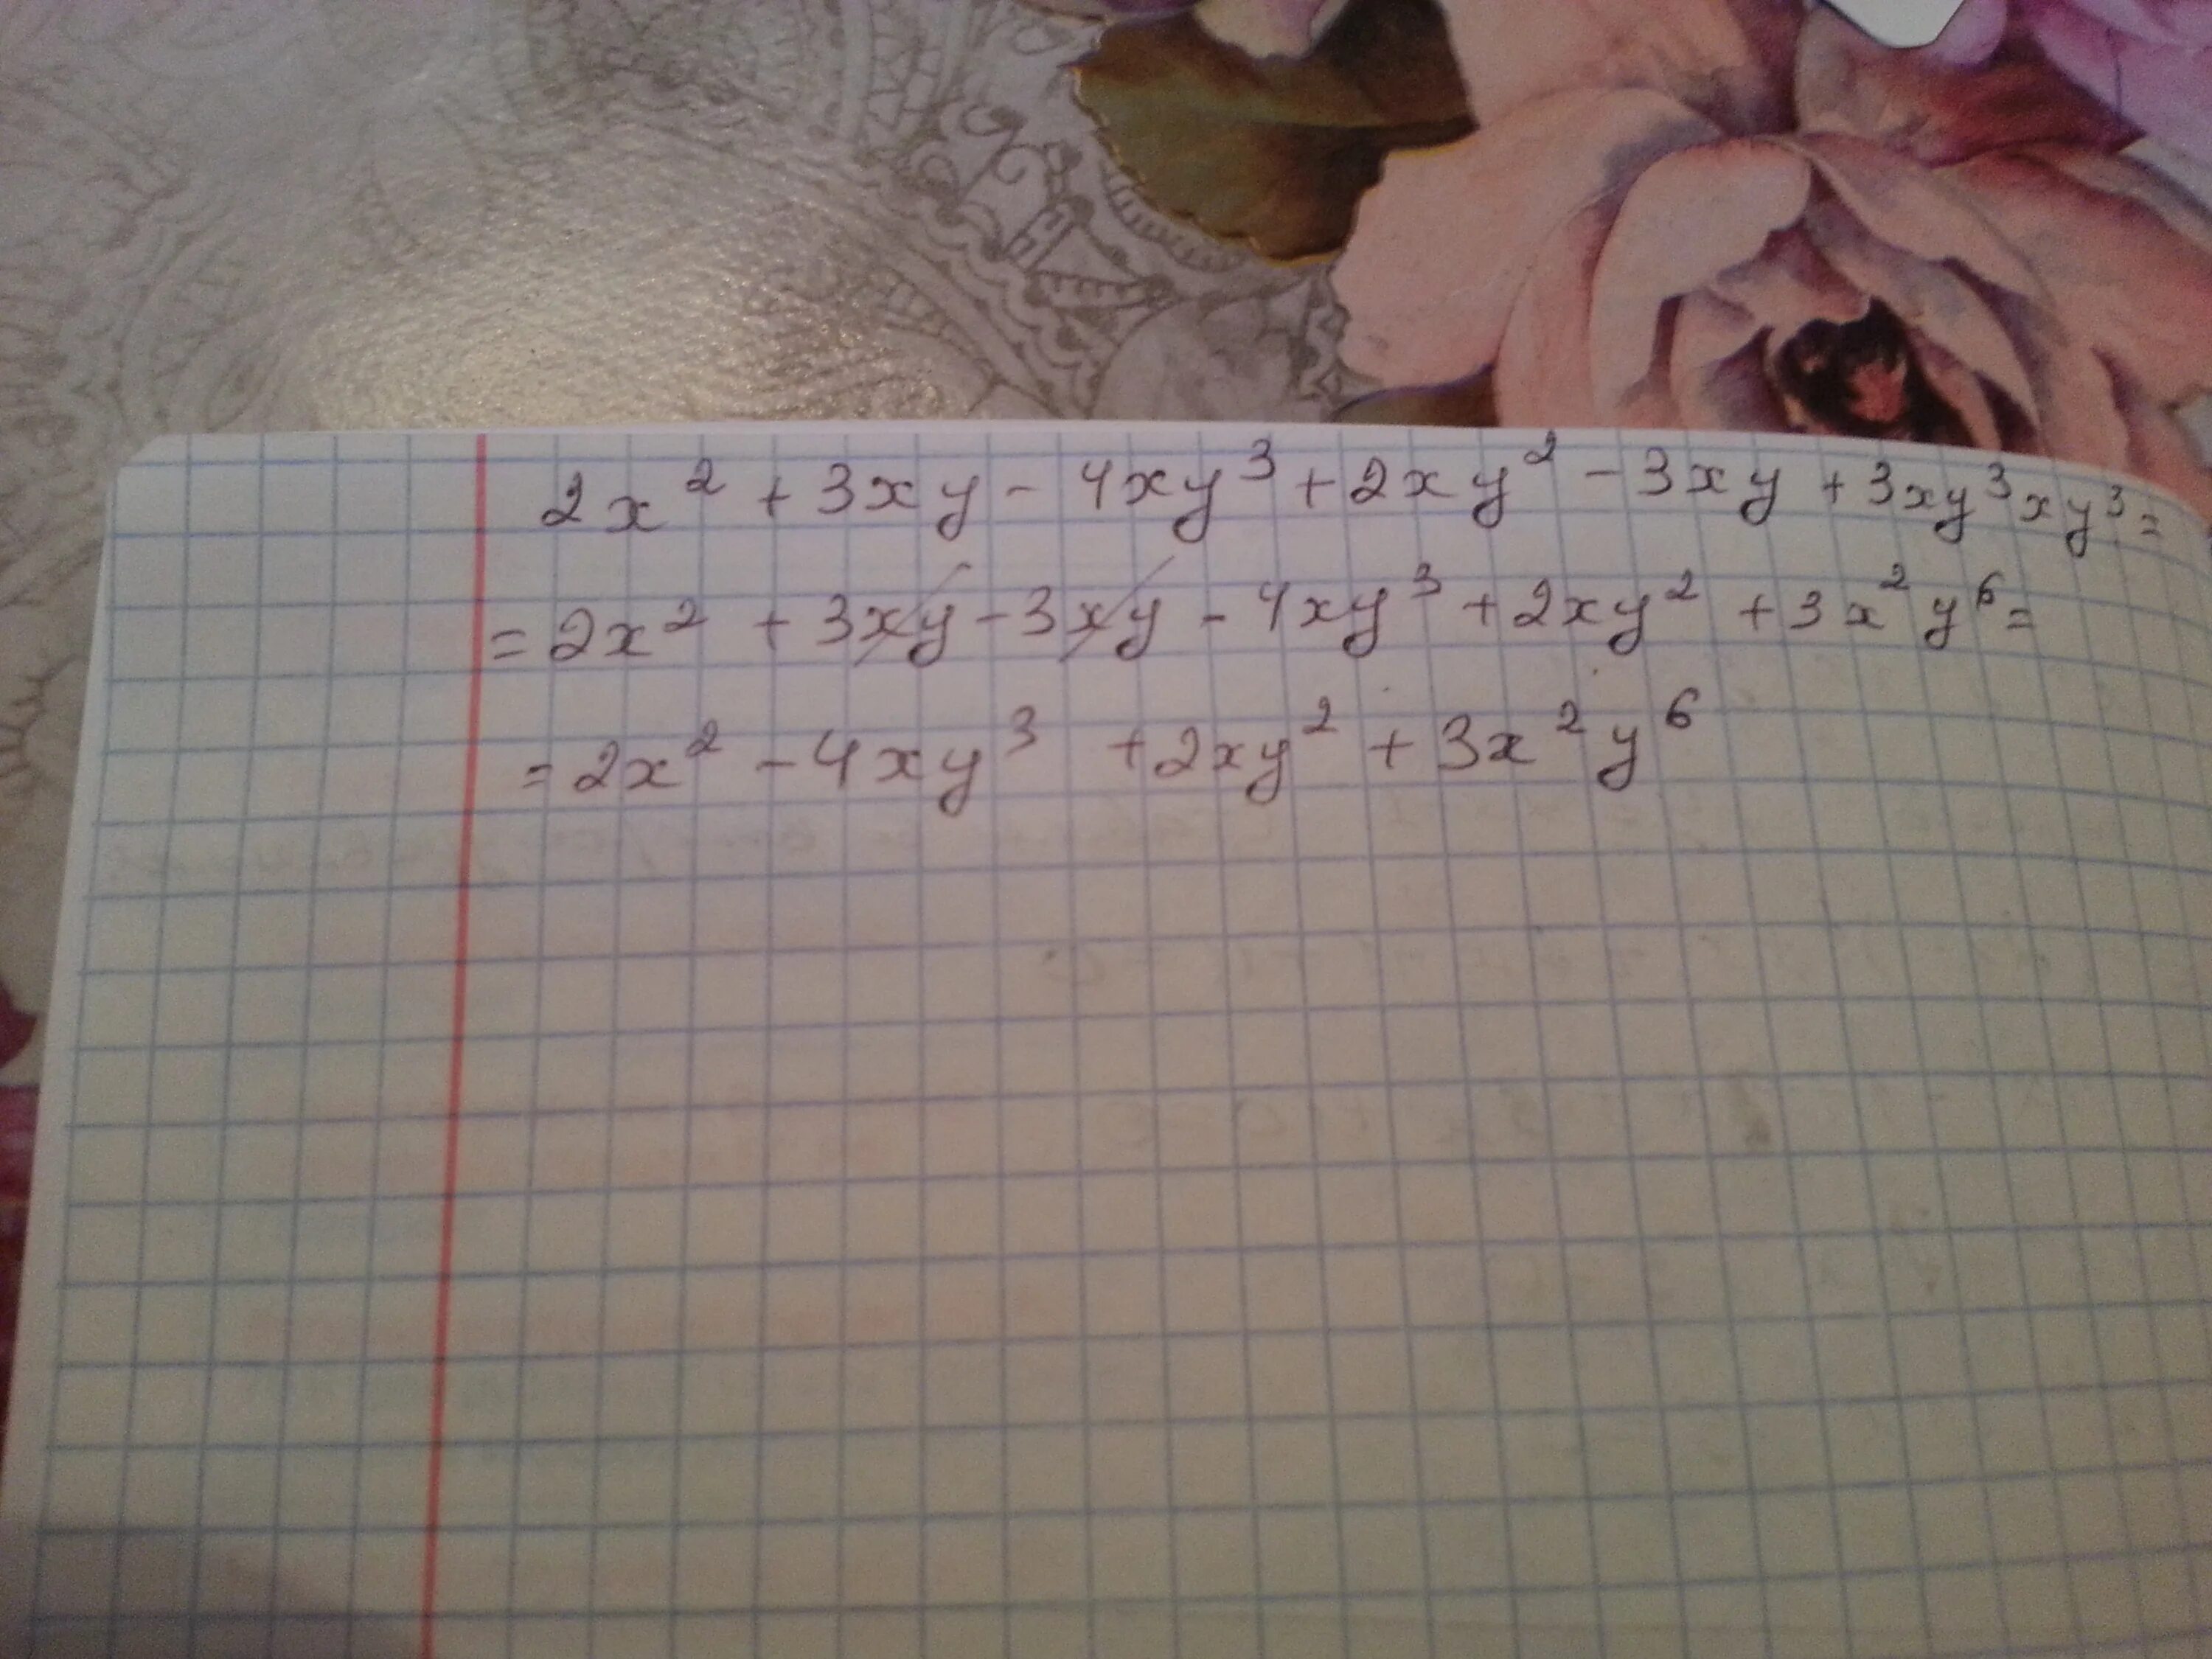 2x² + 3xy - 4xy³ + 2xy² - 3xy + 3xy³xy³ =
= 2x² + 3xy - 3xy - 4xy³ + 2xy² + 3x²y⁶ =
= 2x² - 4xy³ + 2xy² + 3x²y⁶